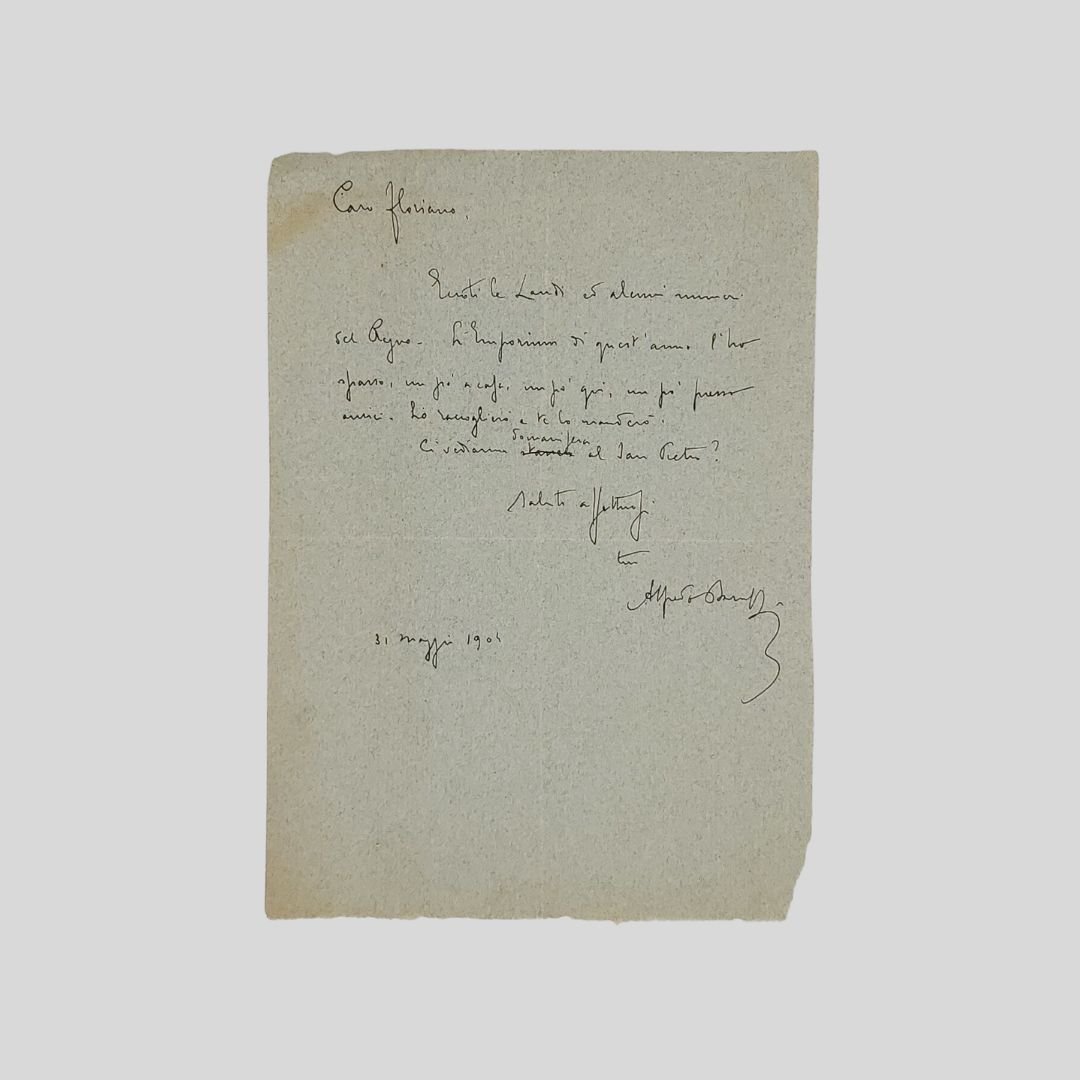 Caro Floriano,
Eccoti le Laudi ed alcuni numeri
del Regno. L'Emporium di quest'anno l'ho
sparso, un po' a casa, un po' qui, un po' presso
amici. Lo raccoglierò e te lo manderò.
domani sera
Ci vediamo stasera al San Pietro?
Saluti affettuosi
tuo
Alfredo Baruffi
31 maggio 1904